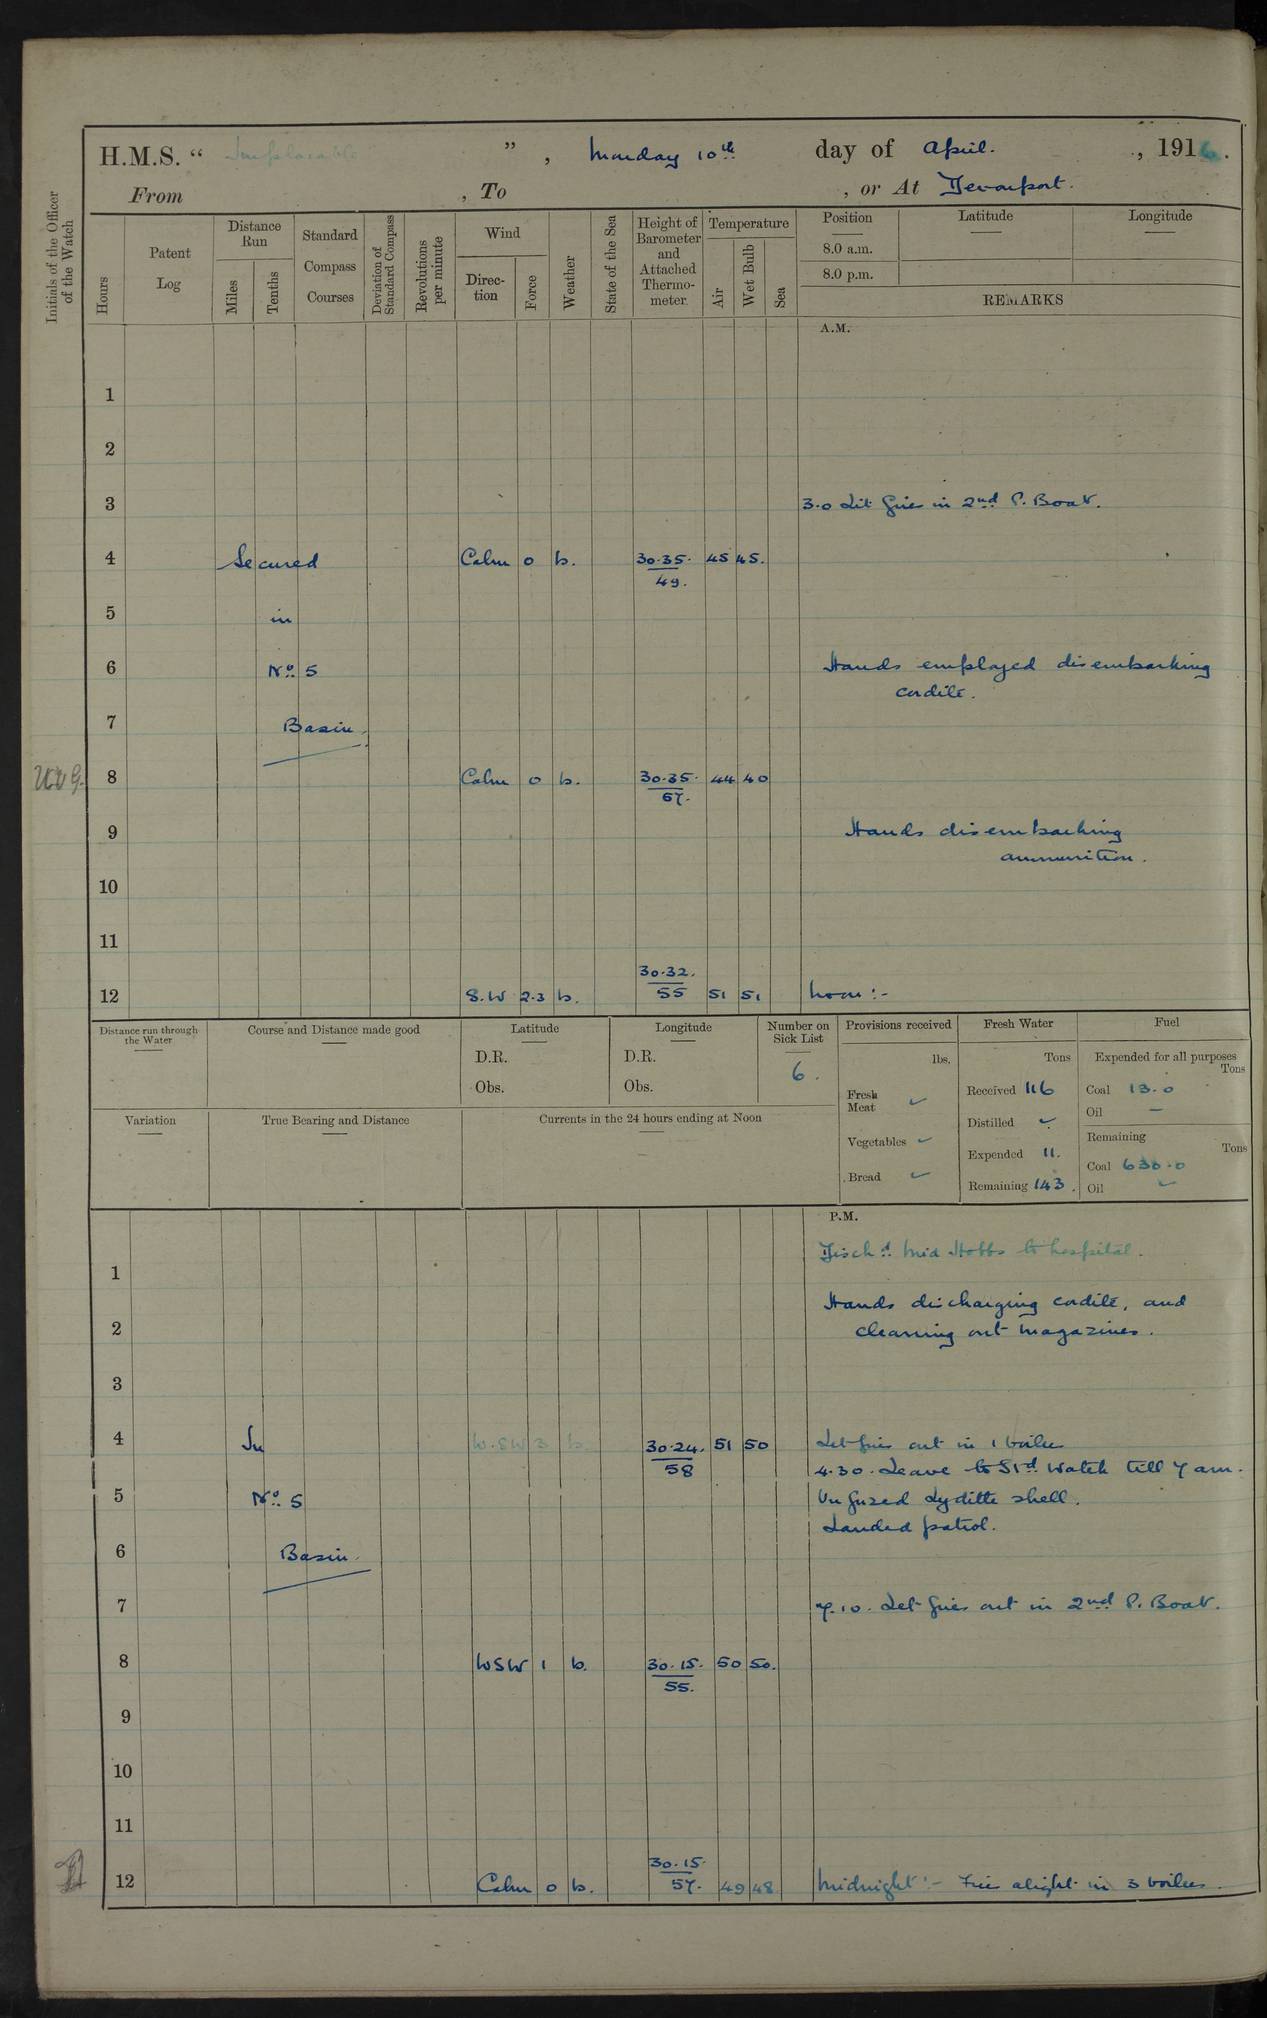 H.M.S. “ Implacable ” , Monday 10th day of April. , 1916.
From , To , or At Devonport.
Initials of the Officer of the Watch
Hours
Patent Log
Distance Run
Miles
Tenths
Standard Compass Courses
Deviation of Standard Compass
Revolutions per minute
Wind
Direc-tion
Force
Weather
State of the Sea
Height of Barometer and Attached Thermo-meter.
Temperature
Air
Wet Bulb
Sea
Position Latitude Longitude
8.0 a.m.
8.0 p.m.
REMARKS
A.M.
1
2
3 3.0 Lit fires in 2nd P. Boat.
4 Secured Calm 0 b. 30.35. 45 45.
49.
5 in
6 No. 5 Hands employed disembarking
cordite.
7 Basin.
8 Calm 0 b. 30.35. 44 40
57.
9 Hands disembarking
ammunition.
10
11
30.32.
12 S.W 2.3 b. 55 51 51 Noon :-
Distance run through the Water
Course and Distance made good
Latitude
D.R.
Obs.
Longitude
D.R.
Obs.
Number on Sick List
6.
Provisions received
lbs.
Fresh Meat ✓
Vegetables ✓
Bread ✓
Fresh Water
Tons
Received 116
Distilled ✓
Expended 11.
Remaining 143.
Fuel
Expended for all purposes
Tons
Coal 13.0
Oil –
Remaining
Tons
Coal 630.0
Oil ✓
Variation
True Bearing and Distance
Currents in the 24 hours ending at Noon
P.M.
Disch'd Mid Hobbs to hospital.
1
Hands discharging cordite, and
2 cleaning out magazines.
3
4 In W.SW 3 b. 30.24. 51 50 Let fires out in 1 boiler
58 4.30. Leave to Std Watch till 7 am.
5 No. 5 Unfuzed Lyditte shell.
Landed patrol.
6 Basin.
7 7.10. Let fires out in 2nd P. Boat.
8 WSW 1 b. 30.15. 50 50.
55.
9
10
11
30.15.
12 Calm 0 b. 57. 49 48 Midnight :- Fires alight in 3 boilers.